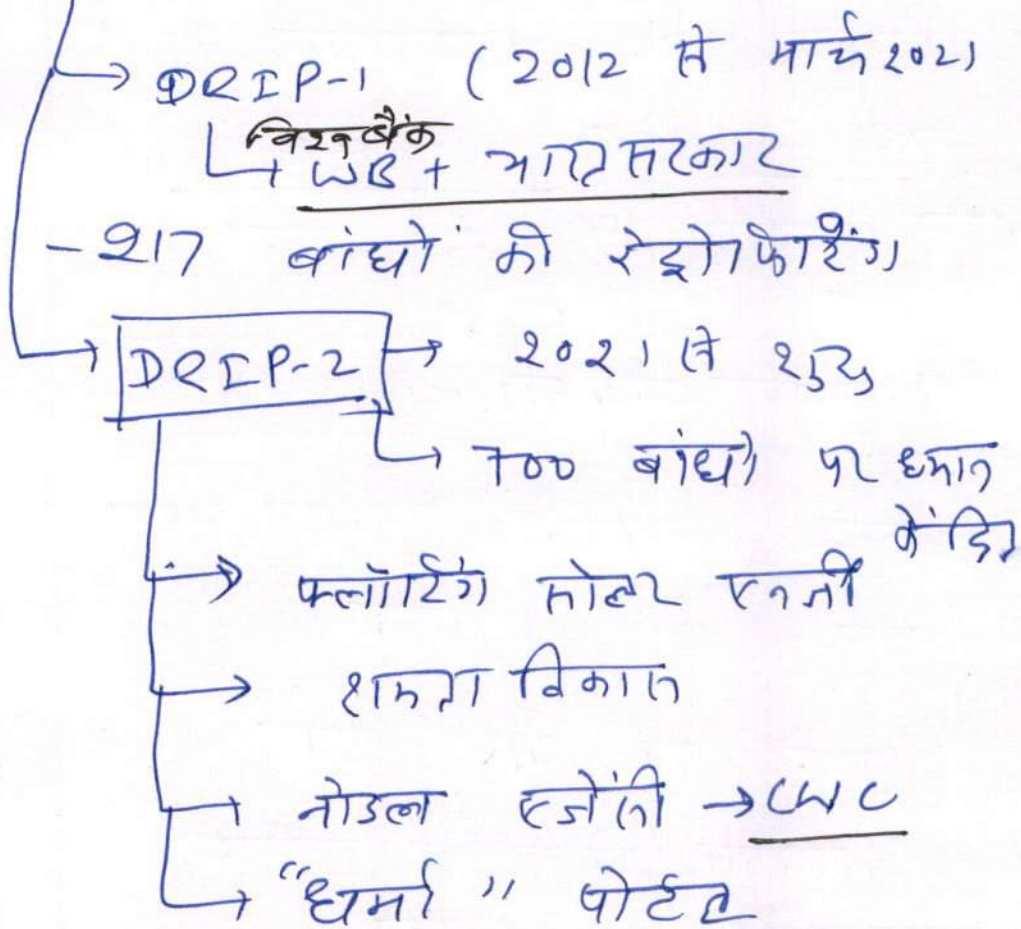 → DRIP-1 (2012 से मार्च 2021
विश्व बैंक
→ WB + भारत सरकार
- 217 बांधों की रेट्रोफिटिंग
→ DRIP-2 → 2021 से
→ 700 बांधों पर ध्यान
केंद्रित
→ फ्लोटिंग सोलर एनर्जी
→ क्षमता विकास
→ नोडल एजेंसी → CWC
→ "धर्मा" पोर्टल